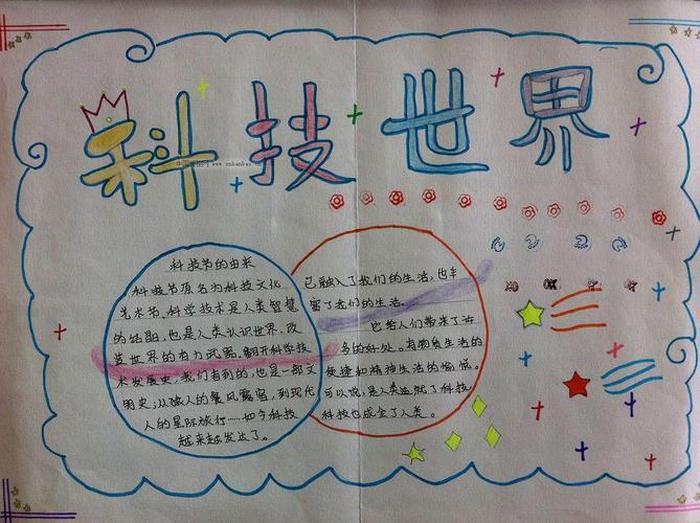 科技世界
科技节的由来
科技节原名为科技文化
艺术节。科学技术是人类智慧
的结晶，也是人类认识世界，改
造世界的有力武器。翻开科学技
术发展史，我们看到的，也是一部文
明史；从猿人的餐风露宿，到现代
人的星际旅行……如今科技
越来越发达了。
已融入了我们的生活，也丰
富了我们的生活。
也给人们带来了许
多的好处。有物质生活的
便捷和精神生活的愉悦。
可以说，是人类造就了科技
科技也成全了人类。